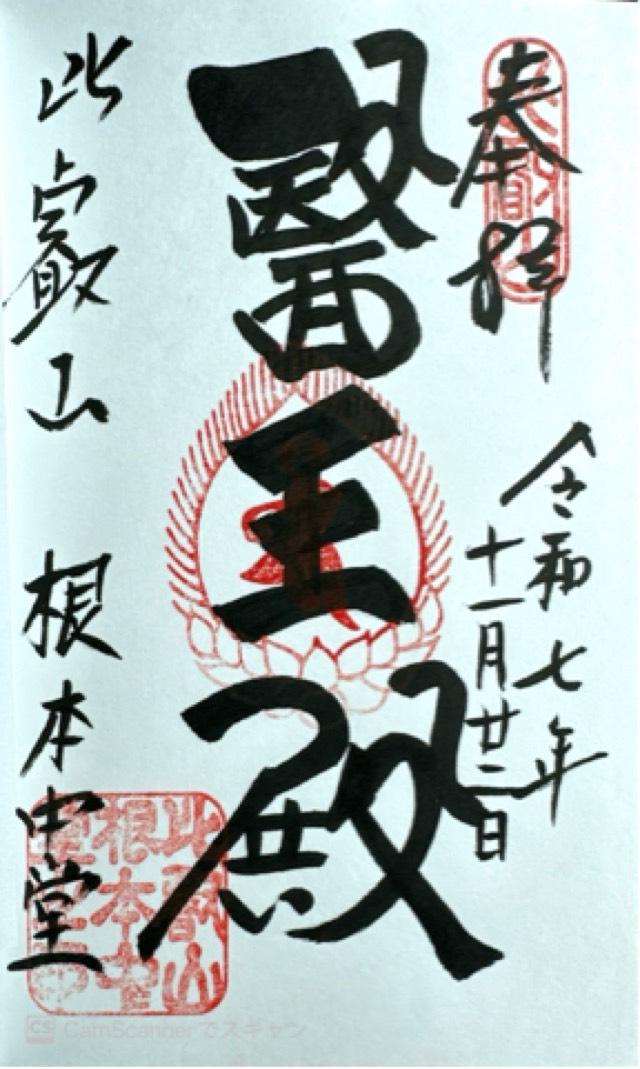 奉拝
令和七年
十一月廿二日
醫王殿
比叡山 根本中堂
比叡山
比叡山
根本中
堂
CS CamScannerでスキャン